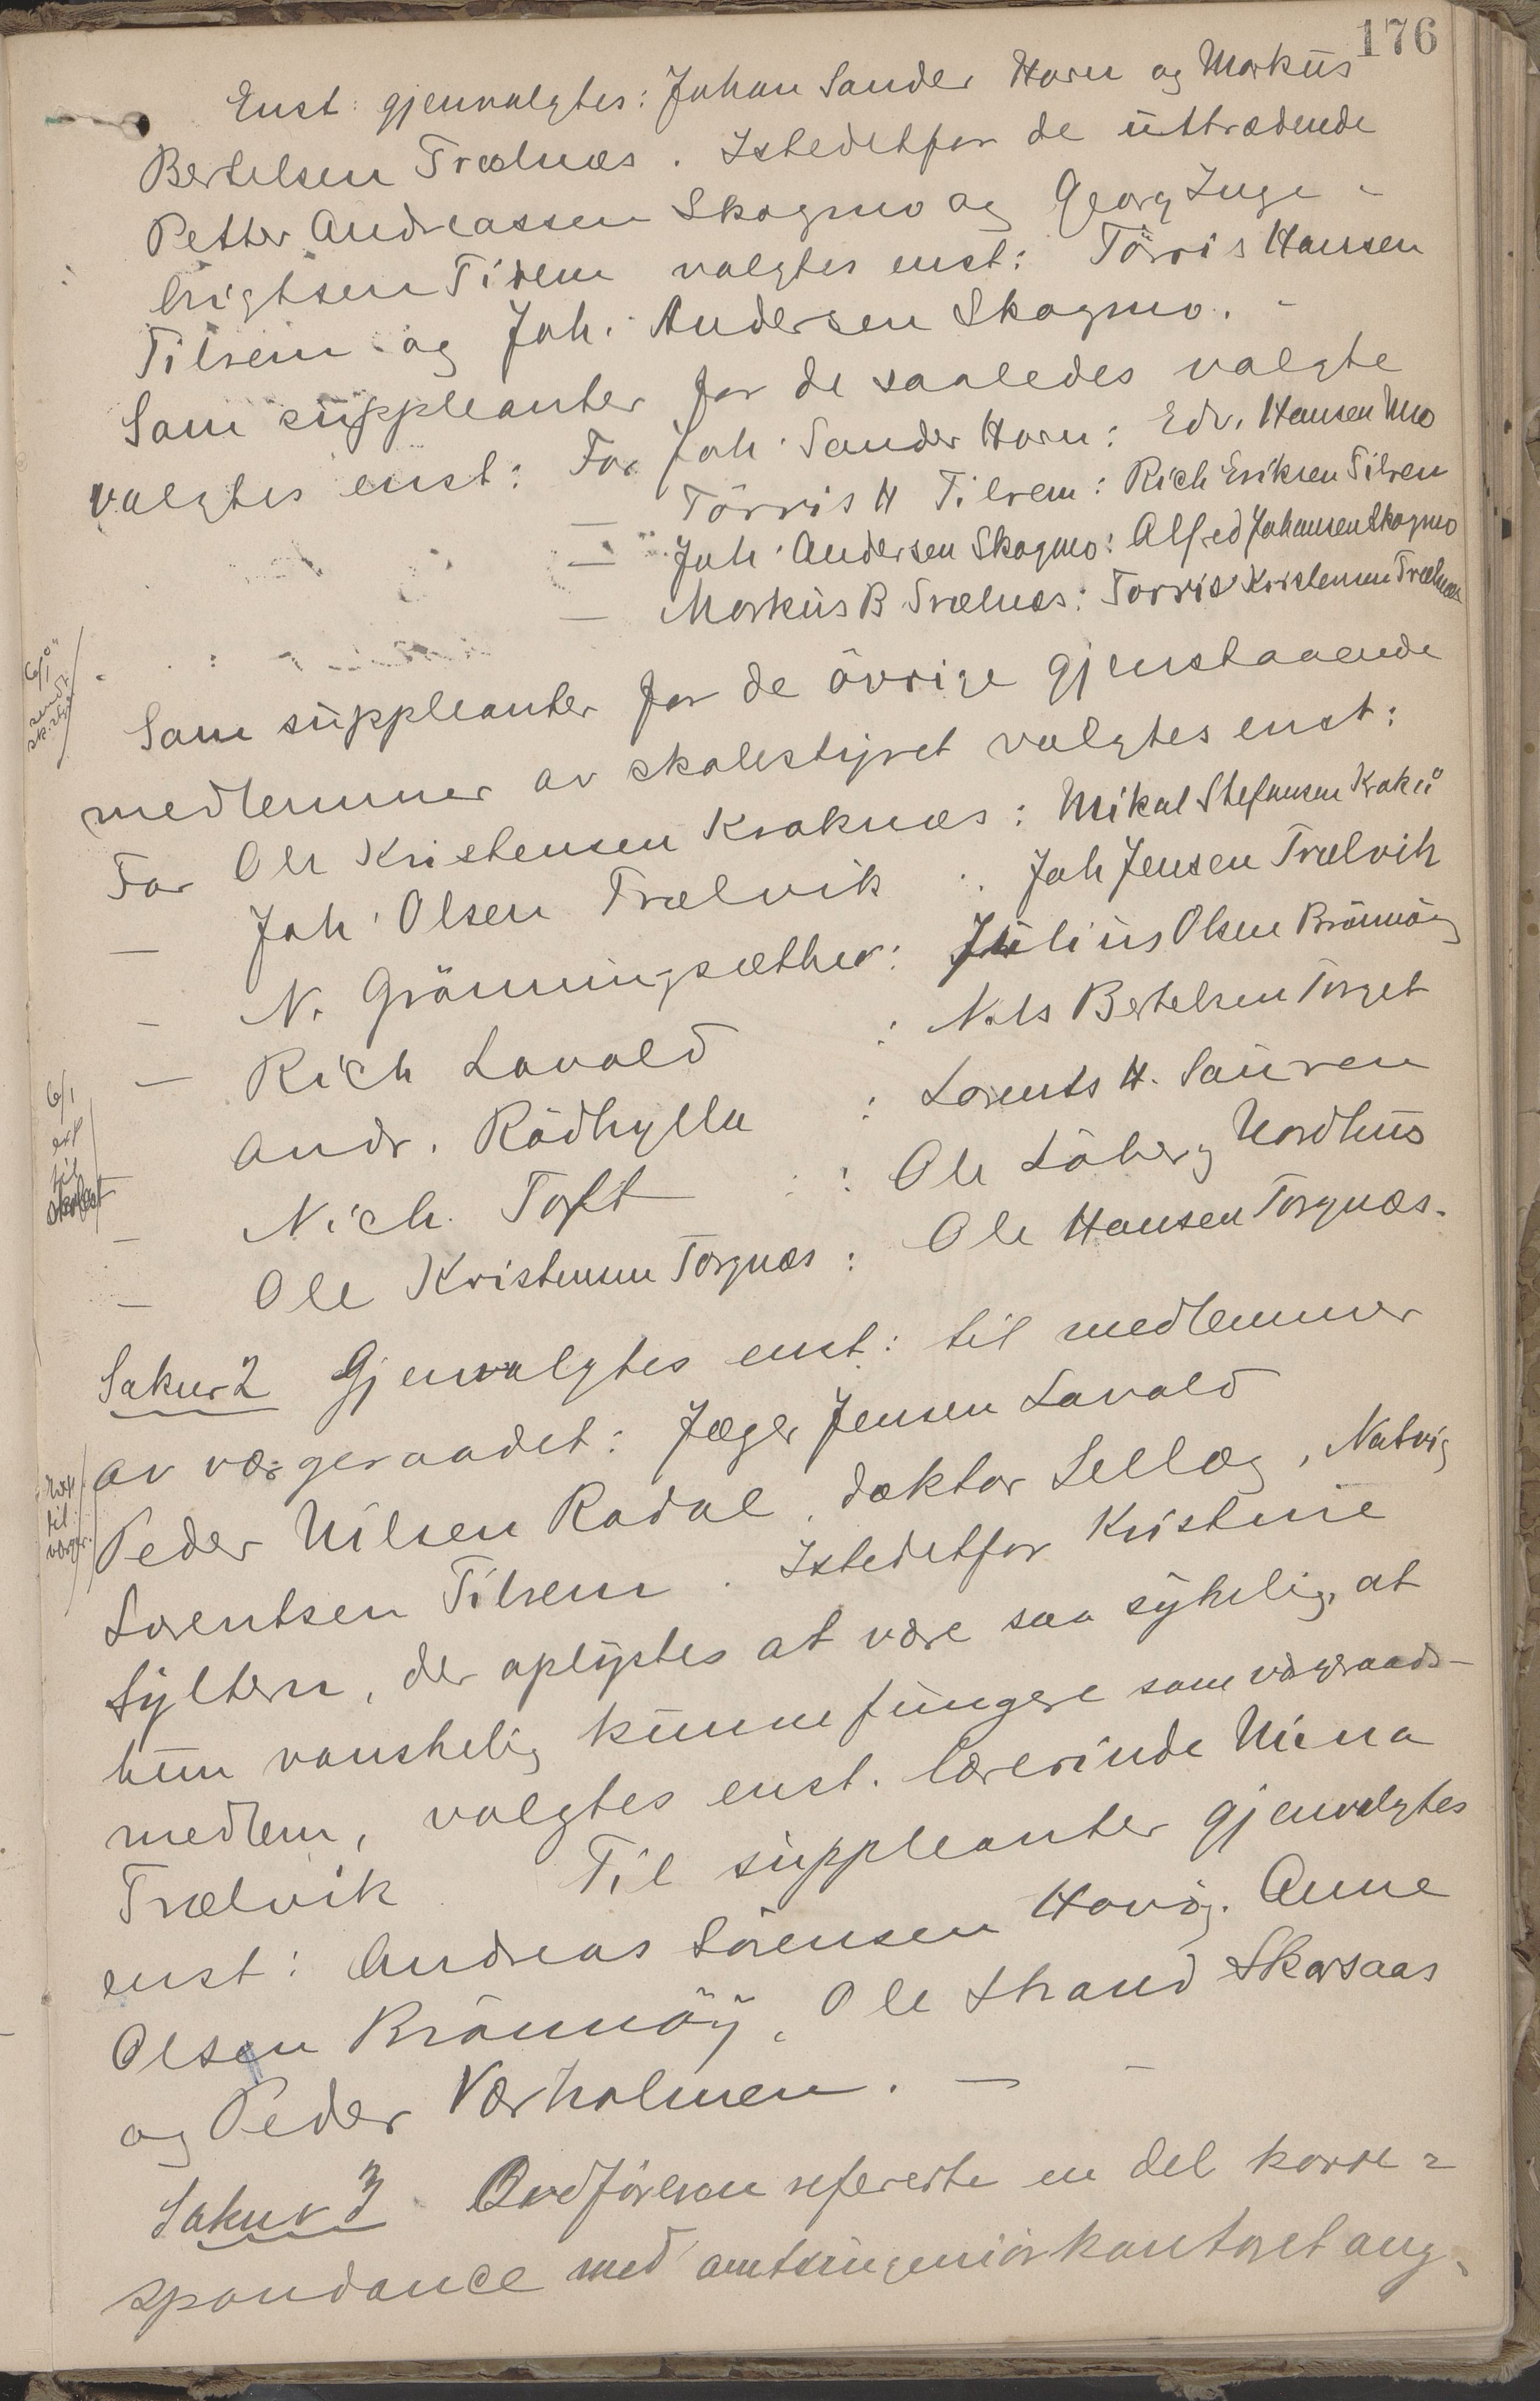 176
Enst: gjenvalgtes: Johan Sander Horn og Markus
Bertelsen Trælnes. Istedetfor de uttrædende
Petter Andreassen Skogmo og Georg Inge-
brigtsen Tilrem valgtes enst: Törris Hansen
Tilrem og Joh. Andersen Skogmo. -
Som suppleanter for de saaledes valgte
valgtes enst: For Joh. Sander Horn: Edv. Hansen Mo
— Törris H Tilrem: Rich Eriksen Tilrem
— Joh. Andersen Skogmo: Alfred Johansen Skogmo
— Markus B Trælnes: Torris Kristensen Trælnes
Som suppleanter for de övrige gjenstaaende
medlemmer av skolestyret valgtes enst:
For Ole Kristensen Kraknæs: Mikal Stefansen Krakn
— Joh. Olsen Trælvik : Joh Jensen Trælvik
— N. Grönningsæther: Julius Olsen Brönnöy
— Rich Lavold : Nils Bertelsen Torget
Andr. Rödhylla : Lorents H. Sauren
— Nich. Toft : Ole Löberg Nordhus
— Ole Kristensen Torgnæs: Ole Hansen Torgnæs.
6/1
sendt
6/1
exp
til
skolest
Sak nr 2 Gjenvalgtes enst: til medlemmer
av værgeraadet: Jæger Jensen Lavold
Peder Nilsen Rodal, doktor Sellæg, Natvig
Lorentsen Tilrem. Istedetfor Kristine
Syltern, der oplystes at være saa sykelig, at
hun vanskelig kunne fungere som værgeraads-
medlem, valgtes enst. lærerinde Nina
Trælvik Til suppleanter gjenvalgtes
enst: Andreas Sörensen Havöy. Anne
Olsen Brönnöy, Ole Strand Skarsaas
og Peder Værholmen. —
til
værger.
Sak nr 3 Ordföreren refererte en del korre=
spondance med amtsingeniörkontoret ang.